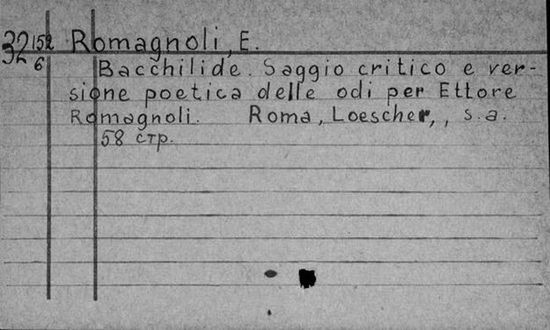 32 152 Romagnoli, E.
6
Bacchilide. Saggio critico e ver-
sione poetica delle odi per Ettore
Romagnoli. Roma, Loescher, , s.a.
58 стр.